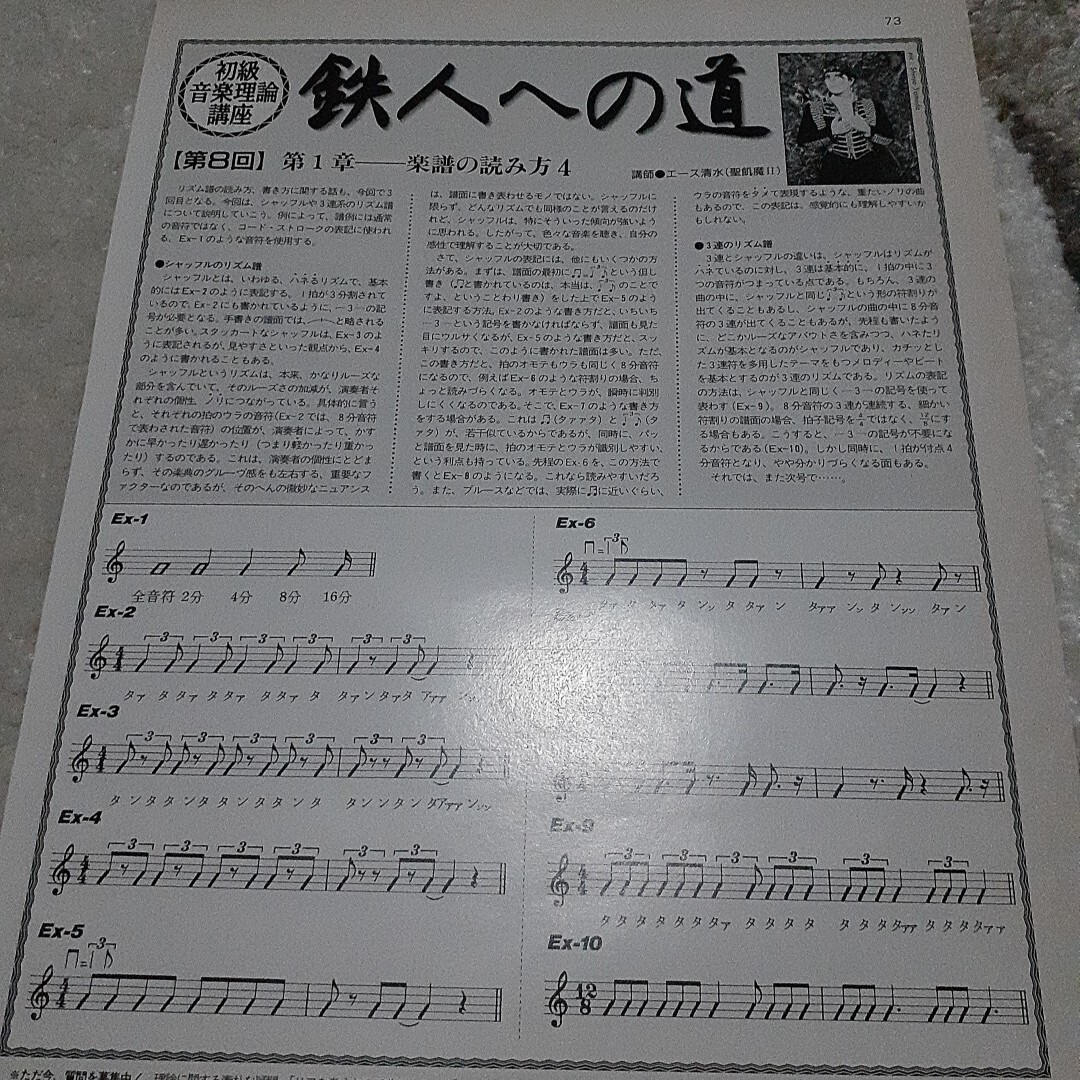 73
初級
音楽理論
講座
鉄人への道
【第8回】第1章——楽譜の読み方4
講師●エース清水(聖飢魔II)
リズム譜の読み方、書き方に関する話も、今回で3
回目となる。今回は、シャッフルや3連系のリズム譜
について説明していこう。例によって、譜例には通常
の音符ではなく、コード・ストロークの表記に使われ
る、Ex-1のような音符を使用する。
●シャッフルのリズム譜
シャッフルとは、いわゆる、ハネるリズムで、基本
的にはEx-2のように表記する。1拍が3分割されて
いるので、Ex-2にも書かれているように、—3—の記
号が必要となる。手書きの譜面では、—・—と略される
ことが多い。スタッカートなシャッフルは、Ex-3のよ
うに表記されるが、見やすさといった観点から、Ex-4
のように書かれることもある。
シャッフルというリズムは、本来、かなりルーズな
部分を含んでいて、そのルーズさの加減が、演奏者そ
れぞれの個性、ノリにつながっている。具体的に言う
と、それぞれの拍のウラの音符(Ex-2では、8分音符
で表わされた音符)の位置が、演奏者によって、かす
かに早かったり遅かったり(つまり軽かったり重かっ
たり)するのである。これは、演奏者の個性にとどま
らず、その楽典のグルーヴ感をも左右する、重要なフ
ァクターなのであるが、そのへんの微妙なニュアンス
は、譜面に書き表わせるモノではない。シャッフルに
限らず、どんなリズムでも同様のことが言えるのだけ
れど、シャッフルは、特にそういった傾向が強いよう
に思われる。したがって、色々な音楽を聴き、自分の
感性で理解することが大切である。
さて、シャッフルの表記には、他にもいくつかの方
法がある。まずは、譜面の最初に♫=♩3♪という但し
書き(♫と書かれているのは、本当は、♩3♪のことで
すよ、ということわり書き)をした上でEx-5のよう
に表記する方法。Ex-2のような書き方だと、いちいち
—3—という記号を書かなければならず、譜面も見た
目にウルサくなるが、Ex-5のような書き方だと、スッ
キリするので、このように書かれた譜面は多い。ただ、
この書き方だと、拍のオモテもウラも同じく8分音符
になるので、例えばEx-6のような符割りの場合、ち
ょっと読みづらくなる。オモテとウラが、瞬時に判別
しにくくなるのである。そこで、Ex-7のような書き方
をする場合がある。これは♫(タァァタ)と♩3♪(タ
ァタ)が、若干似ているからであるが、同時に、パッ
と譜面を見た時に、拍のオモテとウラが識別しやすい、
という利点も持っている。先程のEx-6を、この方法で
書くとEx-8のようになる。これなら読みやすいだろ
う。また、ブルースなどでは、実際に♫に近いぐらい、
ウラの音符をタメて表現するような、重たいノリの曲
もあるので、この表記は、感覚的にも理解しやすいか
もしれない。
●3連のリズム譜
3連とシャッフルの違いは、シャッフルはリズムが
ハネているのに対し、3連は基本的に、1拍の中に3
つの音符がつまっている点である。もちろん、3連の
曲の中に、シャッフルと同じ♩3♪という形の符割りが
出てくることもあるし、シャッフルの曲の中に8分音
符の3連が出てくることもあるが、先程も書いたよう
に、どこかルーズなアバウトさを含みつつ、ハネたリ
ズムが基本となるのがシャッフルであり、カチッとし
た3連符を多用したテーマをもつメロディーやビート
を基本とするのが3連のリズムである。リズムの表記
の方法は、シャッフルと同じく—3—の記号を使って
表わす(Ex-9)。8分音符の3連が連続する、細かい
符割りの譜面の場合、拍子記号を4/4ではなく、12/8にす
る場合もある。こうすると、—3—の記号が不要にな
るからである(Ex-10)。しかし同時に、1拍が付点4
分音符となり、やや分かりづらくなる面もある。
それでは、また次号で……。
Ex-1
全音符 2分 4分 8分 16分
Ex-2
タァ タ タァ タ タァ タ タァ タ タァン タァタ アァァ
Ex-3
タンタタンタタンタタンタ タンンタンタァァァン
Ex-4
Ex-5
Ex-6
タァ タ タァ タ ンッ タ タァ ン タァァ ンッ タ ンッン タァン
Ex-9
タタタタタタタァタタタタ タタタタァァタタタタァァ
Ex-10
※ただ今、質問を募集中!